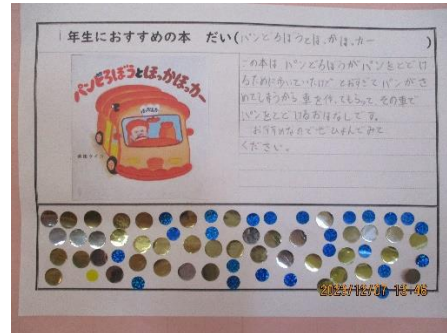 1年生におすすめの本 だい(パンどろぼうとほっかほっカー)
パンどろぼうとほっかほっカー
柴田ケイコ
この本は パンどろぼうが パンをとどけ
るために歩いていたけど とおすぎて パンがさ
めてしまうから 車を作ってもらって その車で
パンをとどけるおはなしです。
おすすめなのでぜひよんでみて
ください。
2023/12/07 15:46